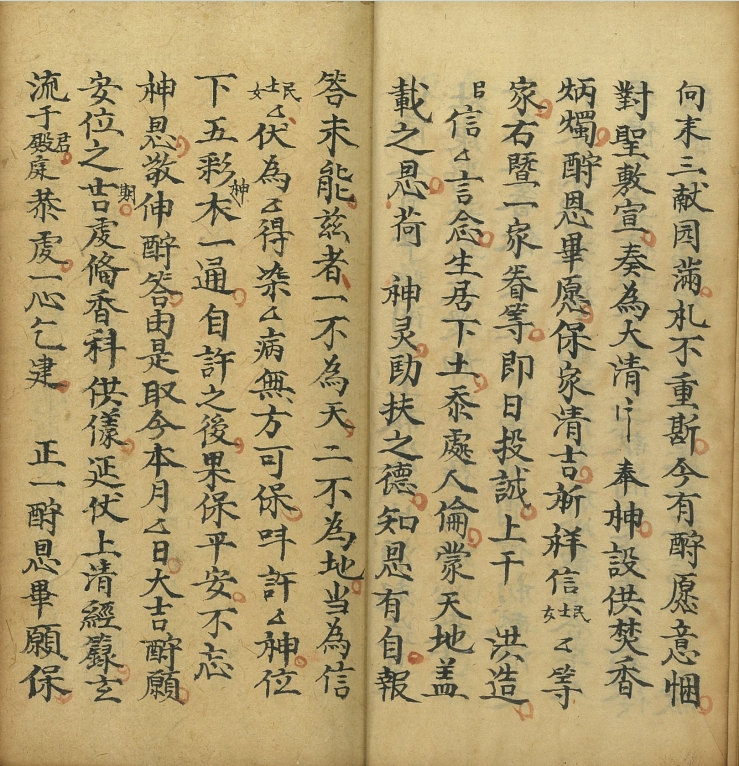 向来三献园滿札不重斯今有酧愿意悃
對聖敷宣奏為大清 奉神設供焚香
炳燭酧恩畢愿保家清吉祈祥信民士女厶等
家右暨一家眷等即日投誠上干 洪造
信厶言念生居下土忝處人倫蒙天地盖
載之恩荷 神灵助扶之德知恩有自報
答未能兹者一不為天二不為地当為信
民士女厶伏為厶得染厶病無方可保吽許厶神位
下五彩神衣一通自許之後果保平安不忘
神恩敬伸酧答由是取今本月厶日大吉酧願
安位之期吉處俻香科供儀延伏上清經籙玄
流于君殿庭恭處一心乞建 正一酧恩畢願保